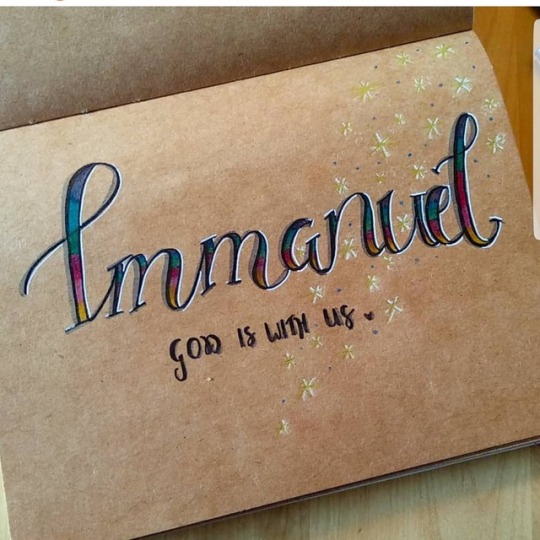 Immanuel
GOD IS WITH US